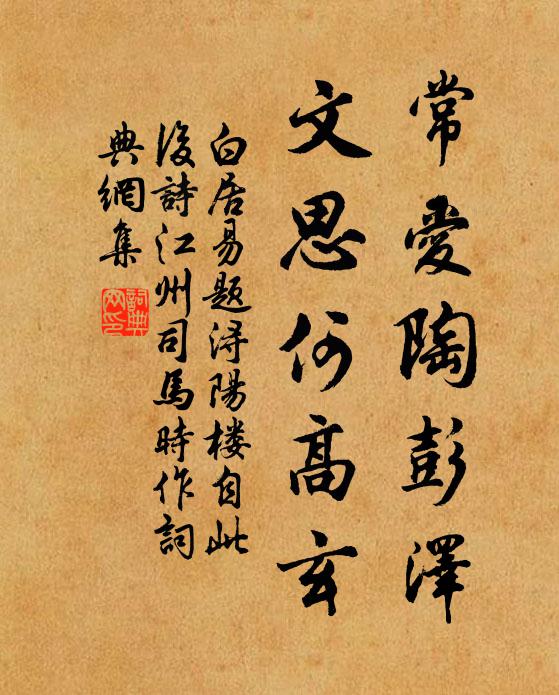 常愛陶彭澤
文思何高玄
白居易題浔陽楼自此
後詩江州司馬時作詞
典網集
詞典
网印